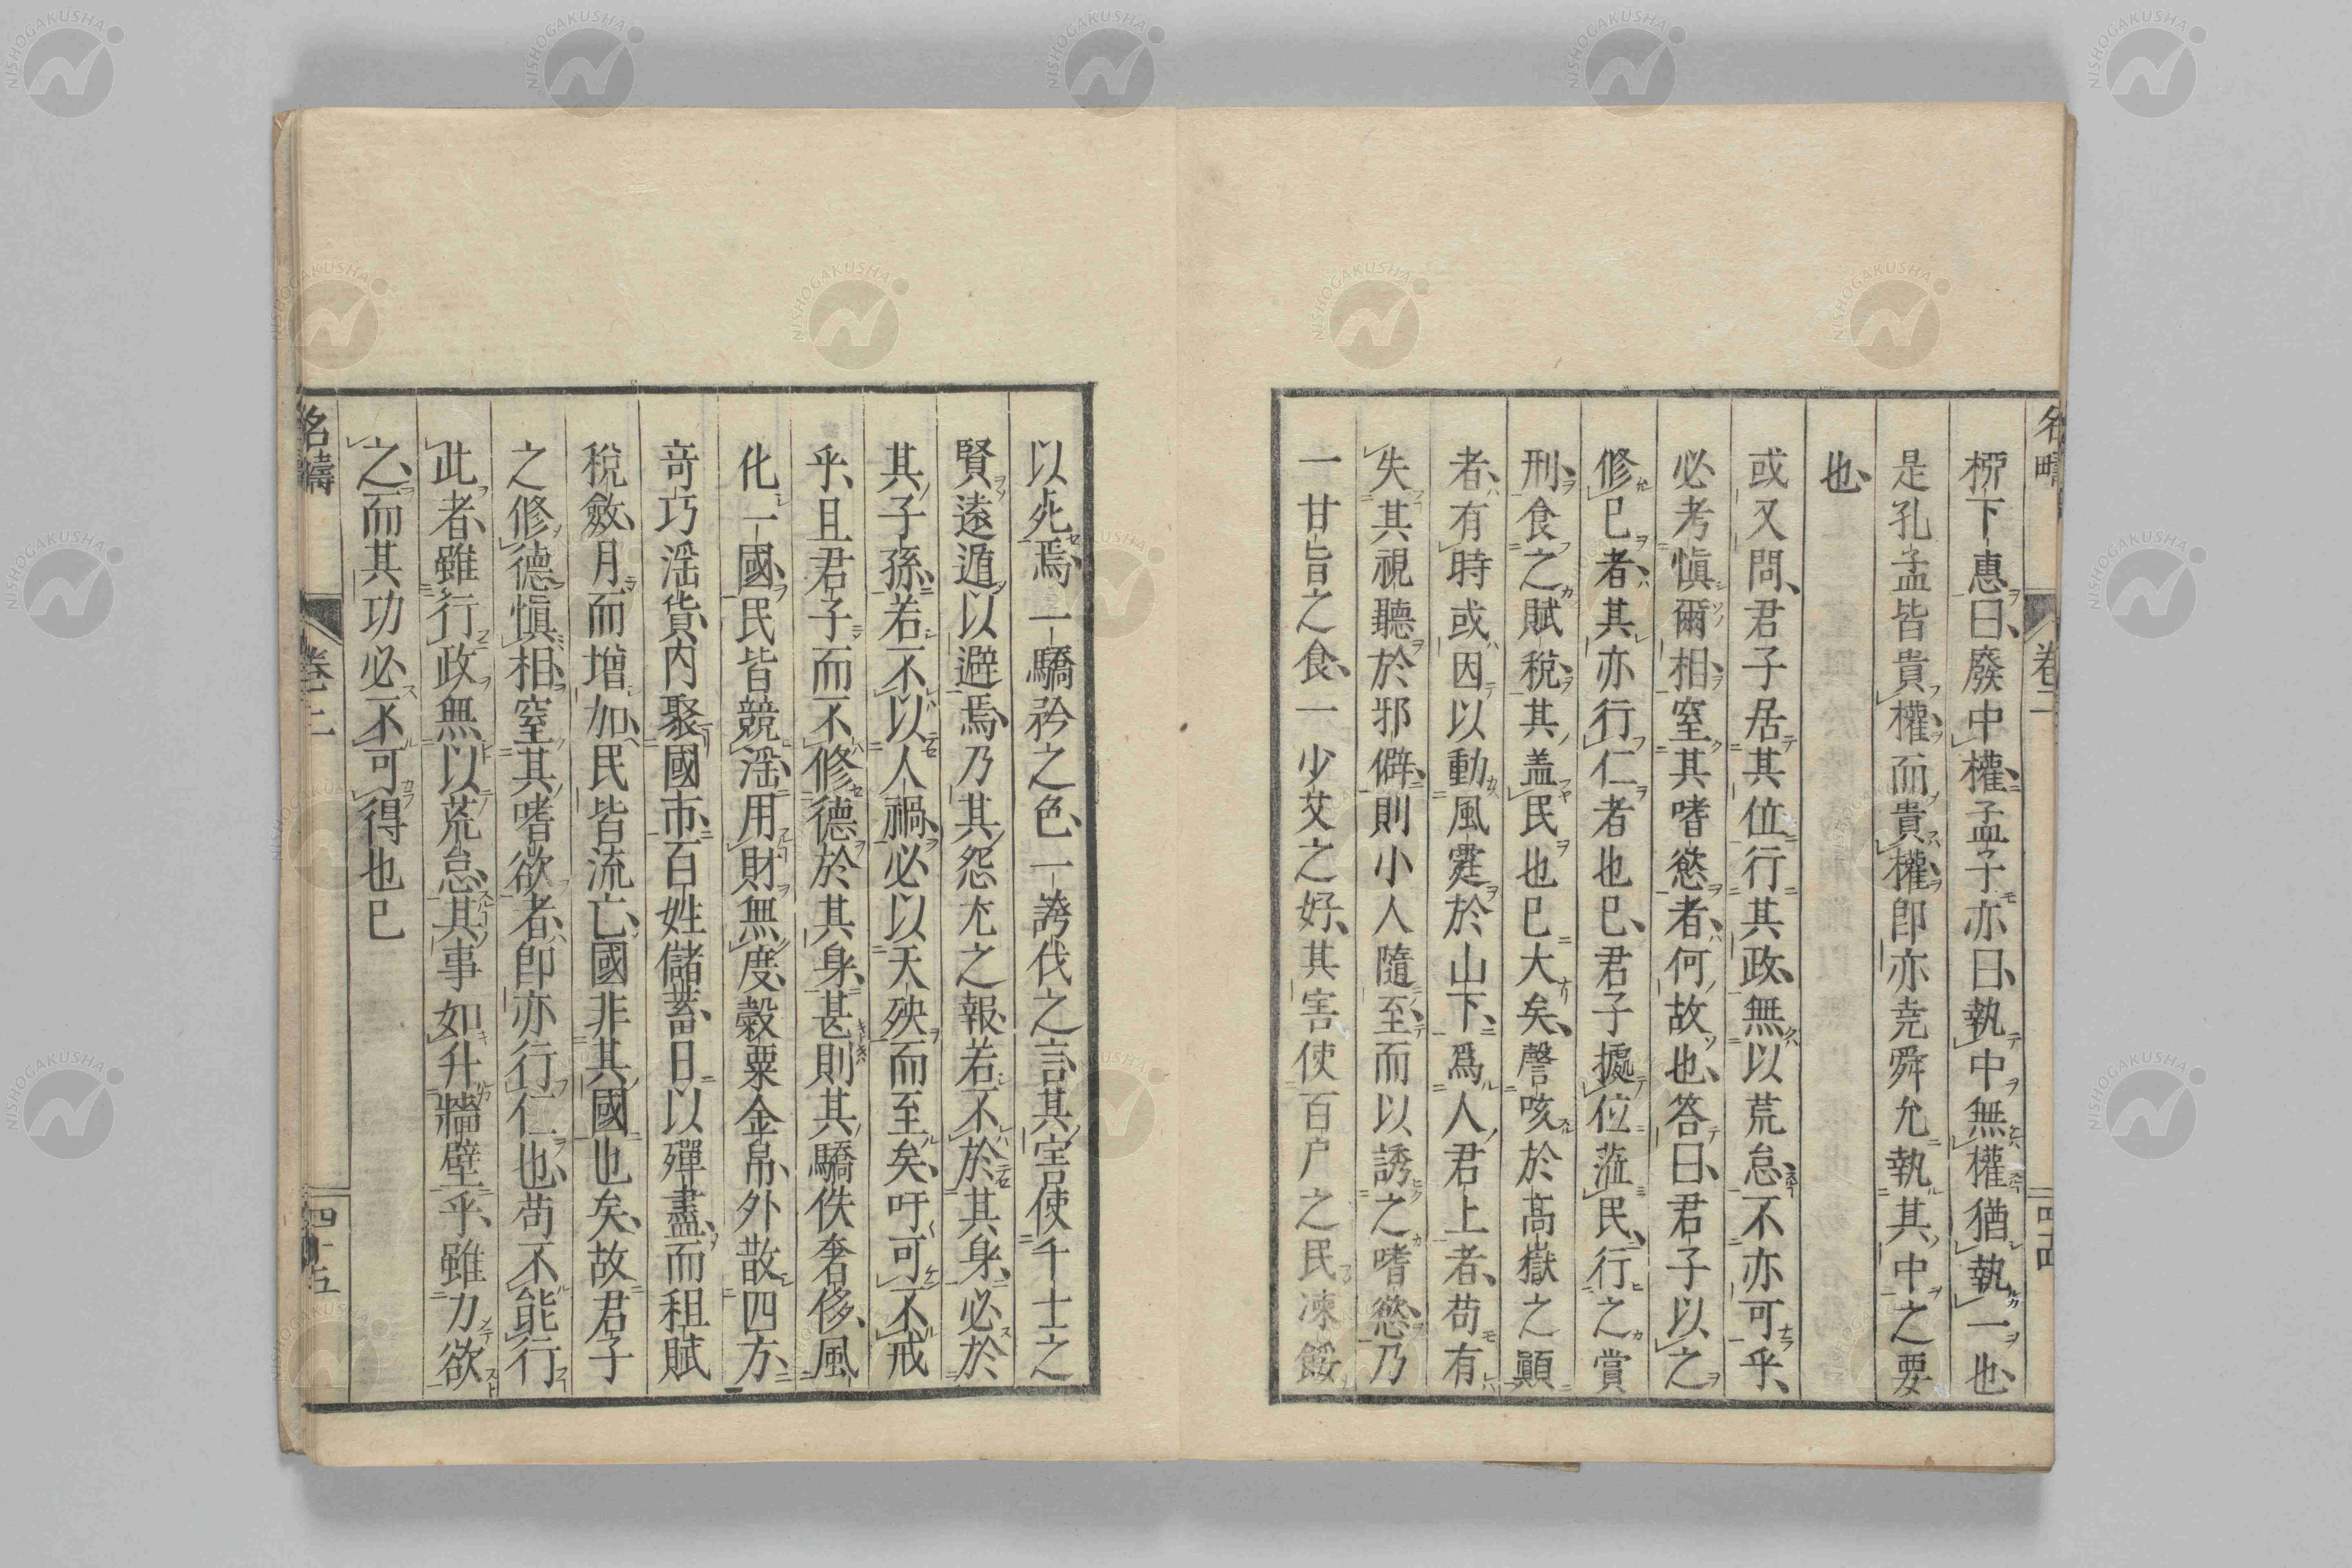 名疇
卷二
桺下惠曰、廢中權、孟子亦曰、執中無權猶執一也、
是孔孟皆貴權、而貴權、卽亦尭舜允執其中之要
也、
或又問、君子居其位、行其政、無以荒怠、不亦可乎、
必考愼爾相、窒其嗜慾者、何故也、答曰、君子以之
修已者、其亦行仁者也巳、君子據位蒞民、行之賞
刑、食之賦稅、其盖民也巳大矣、謦咳於高嶽之顚
者、有時或因以動風霆於山下、爲人君上者、苟有
失其視聽於邪僻、則小人隨至、而以誘之嗜慾、乃
一甘旨之食、一少艾之好、其害使百户之民凍餒
以死焉、一驕矜之色、一誇伐之言、其害使千士之
賢遠遁以避焉、乃其怨尤之報、若不於其身、必於
其子孫、若不以人禍、必以天殃而至矣、吁可不戒
乎、且君子而不修德於其身、甚則其驕佚奢侈、風
化一國、民皆競滛、用財無度、糓粟金帛、外散四方、
竒巧滛貨、內聚國市、百姓儲蓄、日以殫盡、而租賦
稅斂、月而增加、民皆流亡、國非其國也矣、故君子
之修德愼相、窒其嗜欲者、卽亦行仁也、苟不能行
此者、雖行政無以荒怠、其事如升牆壁乎、雖力欲
之、而其功必不可得也巳
名疇
卷二
四十五